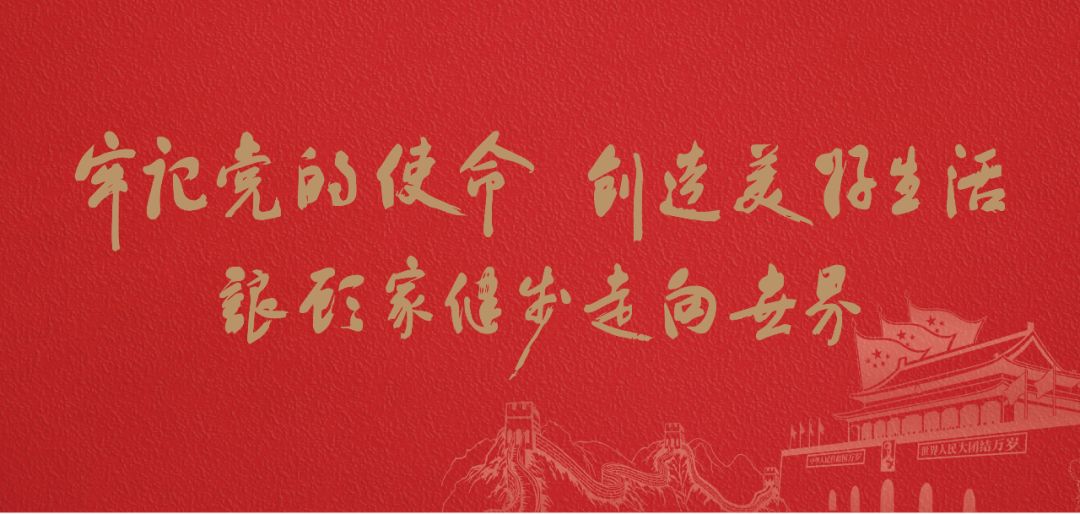 牢记党的使命 创造美好生活
让顾家健步走向世界
中华人民共和国万岁
世界人民大团结万岁